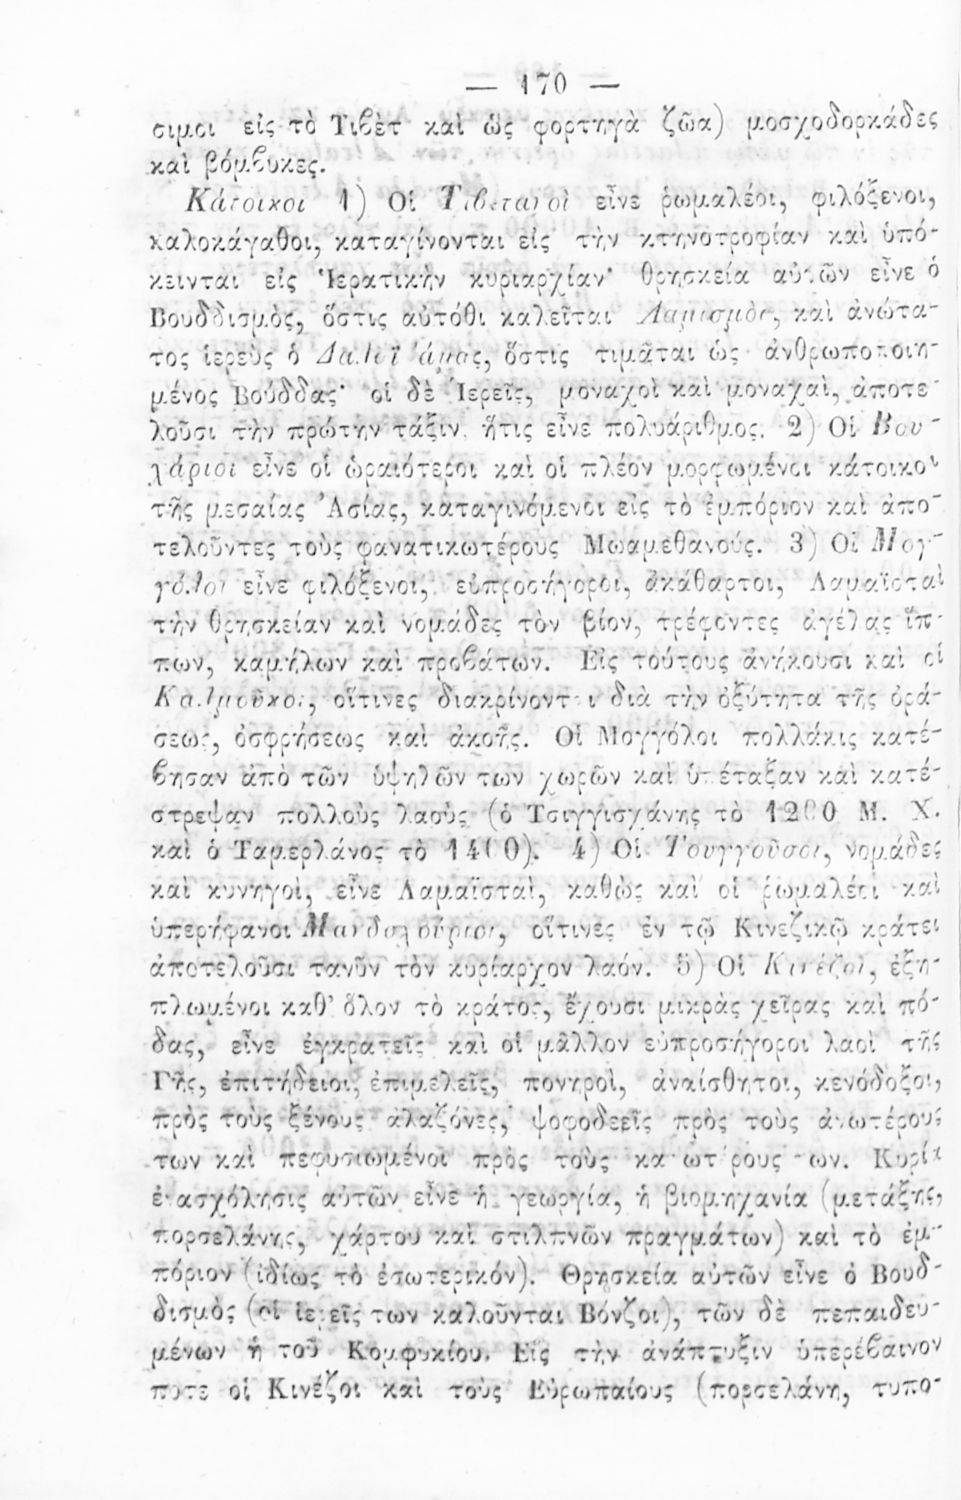 — 170 —
σιμοι εἰς τὸ Τιβὲτ καὶ ὡς φορτηγὰ ζῶα) μοσχοδορκάδες
καὶ βόμβυκες.
Κάτοικοι 1) Οἱ Τιβετανοὶ εἶνε ῥωμαλέοι, φιλόξενοι,
καλοκάγαθοι, καταγίνονται εἰς τὴν κτηνοτροφίαν καὶ ὑπό-
κεινται εἰς Ἱερατικὴν κυριαρχίαν· θρησκεία αὐτῶν εἶνε ὁ
Βουδδισμὸς, ὅστις αὐτόθι καλεῖται Λαμισμὸς, καὶ ἀνώτα-
τος ἱερεὺς ὁ Δαλαϊ Λάμας, ὅστις τιμᾶται ὡς ἀνθρωποποιη-
μένος Βούδδας· οἱ δὲ Ἱερεῖς, μοναχοὶ καὶ μοναχαὶ, ἀποτε-
λοῦσι τὴν πρώτην τάξιν, ἥτις εἶνε πολυάριθμος. 2) Οἱ Βου-
χάριοι εἶνε οἱ ὡραιότεροι καὶ οἱ πλέον μορφωμένοι κάτοικοι
τῆς μεσαίας Ἀσίας, καταγινόμενοι εἰς τὸ ἐμπόριον καὶ ἀπο-
τελοῦντες τοὺς φανατικωτέρους Μωαμεθανούς. 3) Οἱ Μογ-
γόλοι εἶνε φιλόξενοι, εὐπροσήγοροι, ἀκάθαρτοι, Λαμαϊσταὶ
τὴν θρησκείαν καὶ νομάδες τὸν βίον, τρέφοντες ἀγέλας ἵπ-
πων, καμήλων καὶ προβάτων. Εἰς τούτους ἀνήκουσι καὶ οἱ
Καλμοῦκοι, οἵτινες διακρίνονται διὰ τὴν ὀξύτητα τῆς ὁρά-
σεως, ὀσφρήσεως καὶ ἀκοῆς. Οἱ Μογγόλοι πολλάκις κατέ-
βησαν ἀπὸ τῶν ὑψηλῶν των χωρῶν καὶ ὑπέταξαν καὶ κατέ-
στρεψαν πολλοὺς λαοὺς (ὁ Τσιγγισχάνης τὸ 1200 Μ. Χ.
καὶ ὁ Ταμερλάνος τὸ 1400). 4) Οἱ Τουγγοῦσοι, νομάδες
καὶ κυνηγοὶ, εἶνε Λαμαϊσταὶ, καθὼς καὶ οἱ ῥωμαλέοι καὶ
ὑπερήφανοι Μανδσχούριοι, οἵτινες ἐν τῷ Κινεζικῷ κράτει
ἀποτελοῦσι τανῦν τὸν κυρίαρχον λαόν. 5) Οἱ Κινέζοι, ἐξη-
πλωμένοι καθ' ὅλον τὸ κράτος, ἔχουσι μικρὰς χεῖρας καὶ πό-
δας, εἶνε ἐγκρατεῖς καὶ οἱ μᾶλλον εὐπροσήγοροι λαοὶ τῆς
Γῆς, ἐπιτήδειοι, ἐπιμελεῖς, πονηροὶ, ἀναίσθητοι, κενόδοξοι,
πρὸς τοὺς ξένους ἀλαζόνες, ψοφοδεεῖς πρὸς τοὺς ἀνωτέρους
των καὶ πεφυσιωμένοι πρὸς τοὺς κατωτέρους των. Κυρία
ἐνασχόλησις αὐτῶν εἶνε ἡ γεωργία, ἡ βιομηχανία (μετάξης,
πορσελάνης, χάρτου καὶ στιλπνῶν πραγμάτων) καὶ τὸ ἐμ-
πόριον (ἰδίως τὸ ἐσωτερικόν). Θρησκεία αὐτῶν εἶνε ὁ Βουδ-
δισμὸς (οἱ ἱερεῖς των καλοῦνται Βόνζοι), τῶν δὲ πεπαιδευ-
μένων ἡ τοῦ Κομφυκίου. Εἰς τὴν ἀνάπτυξιν ὑπερέβαινον
ποτε οἱ Κινέζοι καὶ τοὺς Εὐρωπαίους (πορσελάνη, τυπο-